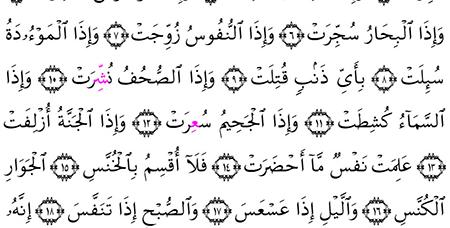 وَإِذَا ٱلْبِحَارُ سُجِّرَتْ ﴿٦﴾ وَإِذَا ٱلنُّفُوسُ زُوِّجَتْ ﴿٧﴾ وَإِذَا ٱلْمَوْءُۥدَةُ
سُئِلَتْ ﴿٨﴾ بِأَىِّ ذَنۢبٍ قُتِلَتْ ﴿٩﴾ وَإِذَا ٱلصُّحُفُ نُشِّرَتْ ﴿١٠﴾ وَإِذَا
ٱلسَّمَآءُ كُشِطَتْ ﴿١١﴾ وَإِذَا ٱلْجَحِيمُ سُعِرَتْ ﴿١٢﴾ وَإِذَا ٱلْجَنَّةُ أُزْلِفَتْ
﴿١٣﴾ عَلِمَتْ نَفْسٌ مَّآ أَحْضَرَتْ ﴿١٤﴾ فَلَآ أُقْسِمُ بِٱلْخُنَّسِ ﴿١٥﴾ ٱلْجَوَارِ
ٱلْكُنَّسِ ﴿١٦﴾ وَٱلَّيْلِ إِذَا عَسْعَسَ ﴿١٧﴾ وَٱلصُّبْحِ إِذَا تَنَفَّسَ ﴿١٨﴾ إِنَّهُۥ